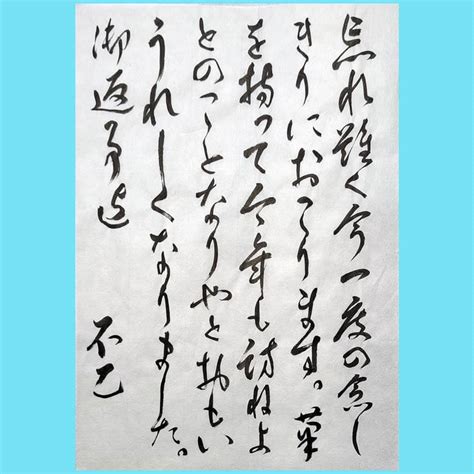 忘れ難く今一度の念し
きりにおこります。菊
を持って今年も訪ねよ
とのことなりやと於もい
うれしくなりました。
御返事迄
不乙